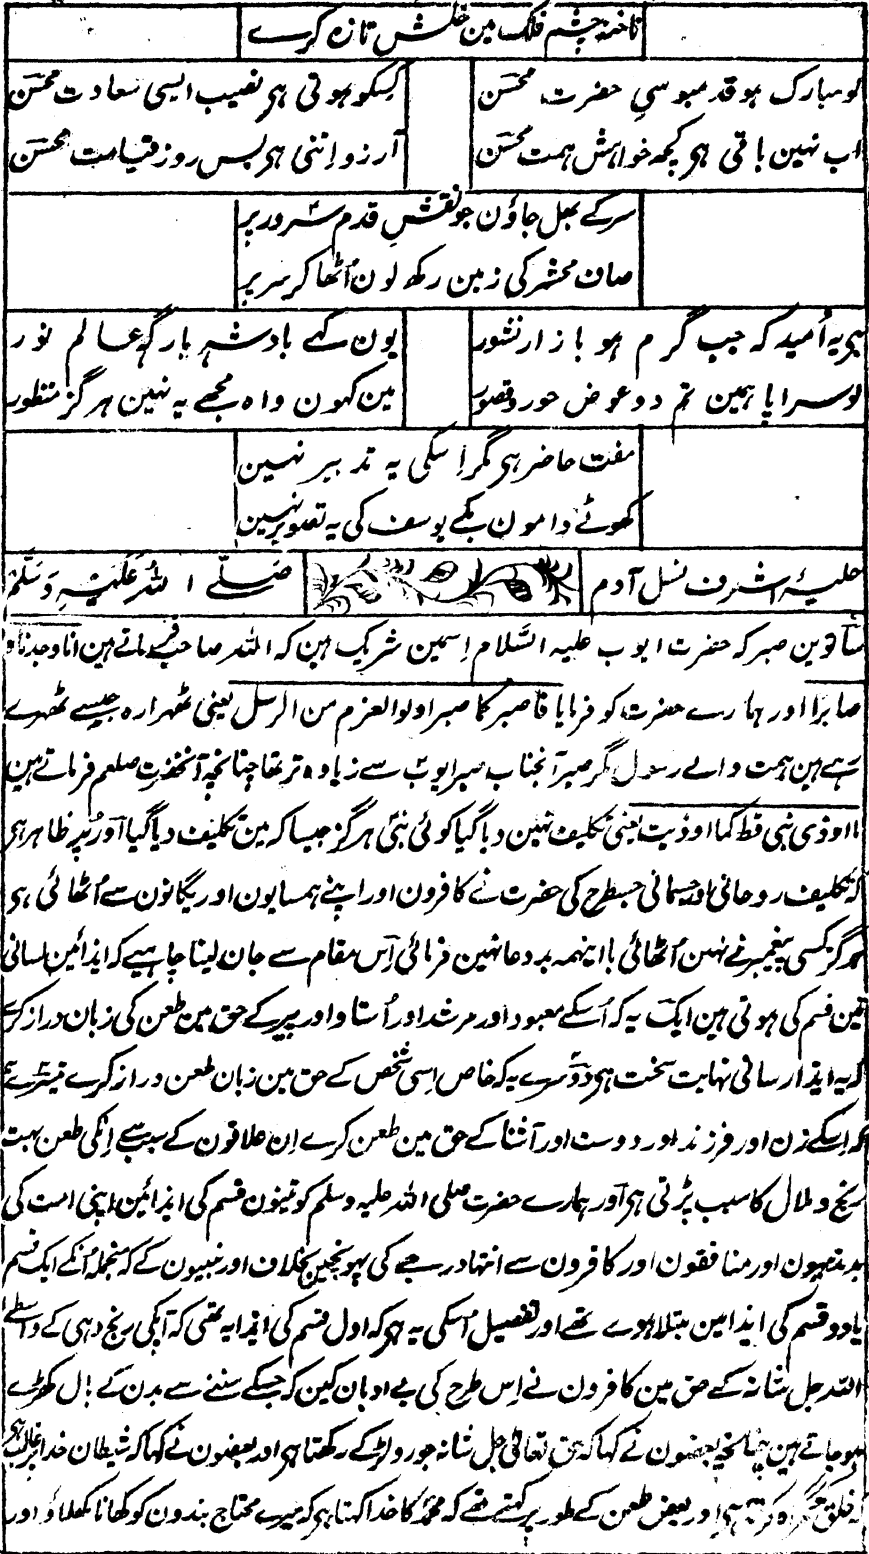 ناخنہ چشم فلک مین خلش تازہ کرے
لو مبارک ہو قدمبوسیِ حضرت محسنؔ کسکو ہوتی ہی نصیب ایسی سعادت محسنؔ
اب نہین باقی ہی کچھ خواہش ہمت محسنؔ آرزو اتنی ہی بس روز قیامت محسنؔ
سر کے بھل جاؤن جو نقشِ قدم سرور پر
صاف محشر کی زمین رکھ لون اُٹھا کر سر پر
ہی یہ اُمید کہ جب گرم ہو بازار نشور یون کہے بادشہ بارگہ عالم نور
لو سراپا ہمین تم دو عوض حور و قصور مین کہون واہ مجھے یہ نہین ہرگز منظور
مفت حاضر ہی مگر اسکی یہ تدبیر نہین
کھوٹے دامون بکے یوسف کی یہ تصویر نہین
حلیۂ اشرف نسل آدم صَلَّے اللہُ عَلَیْہِ وَسَلَّمْ
ساتوین صبر کہ حضرت ایوب علیہ السَّلام اِسمین شریک ہین کہ اللہ صاحب فرماتے ہین انا وجدناہ
صابرًا اور ہمارے حضرت کو فرمایا فاصبر کما صبر اولوالعزم من الرسل یعنی ٹھہرارہ جیسے ٹھہرے
رہے ہین ہمت والے رسول مگر صبر آنجناب صبر ایوب سے زیادہ تر تھا چنانچہ آنحضرت صلعم فرماتے ہین
ما اوذی نبی قط کما اوذیت یعنی تکلیف نہین دیا گیا کوئی نبی ہرگز جیسا کہ مین تکلیف دیا گیا آور یہ ظاہر ہی
کہ تکلیف روحانی اور جسمانی جسطرح کی حضرت نے کافرون اور اپنے ہمسایون اور یگانون سے اُٹھائی ہی
ہرگز کسی پیغمبر نے نہین اُٹھائی با اینہمہ بد دعا نہین فرمائی اِس مقام سے جان لینا چاہیے کہ ایذائین لسانی
تین قسم کی ہوتی ہین ایک یہ کہ اُسکے معبود اور مرشد اور اُستاد اور پیر کے حق مین طعن کی زبان دراز کرے
کہ یہ ایذا رسانی نہایت سخت ہی دوسرے یہ کہ خاص اِسی شخص کے حق مین زبان طعن دراز کرے تیسرے یہ
کہ اِسکے زن اور فرزند اور دوست اور آشنا کے حق مین طعن کرے اِن علاقون کے سبب سے اِنکی طعن بہت
رنج و ملال کا سبب پڑتی ہی آور ہمارے حضرت صلی اللہ علیہ وسلم کو تینون قسم کی ایذائین اپنی امت کی
بدمذہبون اور منافقون اور کافرون سے انتہا درجے کی پہونچین بخلاف اور نبیون کے کہ منجملہ اُنکے ایک قسم
یا دو قسم کی ایذا مین مبتلا ہوے تھے اور تفصیل اُسکی یہ ہی کہ اول قسم کی ایذا یہ تھی کہ آپکی رنج دہی کے واسطے
اللہ جل شانہ کے حق مین کافرون نے اِس طرح کی بے ادبیان کین کہ جسکے سننے سے بدن کے بال کھڑے
ہو جاتے ہین چنانچہ بعضون نے کہا کہ حق تعالیٰ جل شانہ جورو لڑکے رکھتا ہی اور بعضون نے کہا کہ شیطان خدا پر غالب ہی
کہ خلق کو گمراہ کرتا ہی اور بعض طعن کے طور پر کہتے تھے کہ محمدؐ کا خدا کہتا ہی کہ میرے محتاج بندون کو کھانا کھلاؤ اور